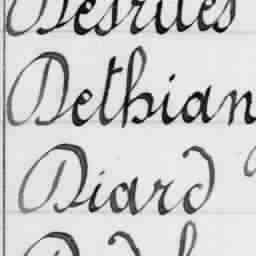 Desrues
Dethian
Diard